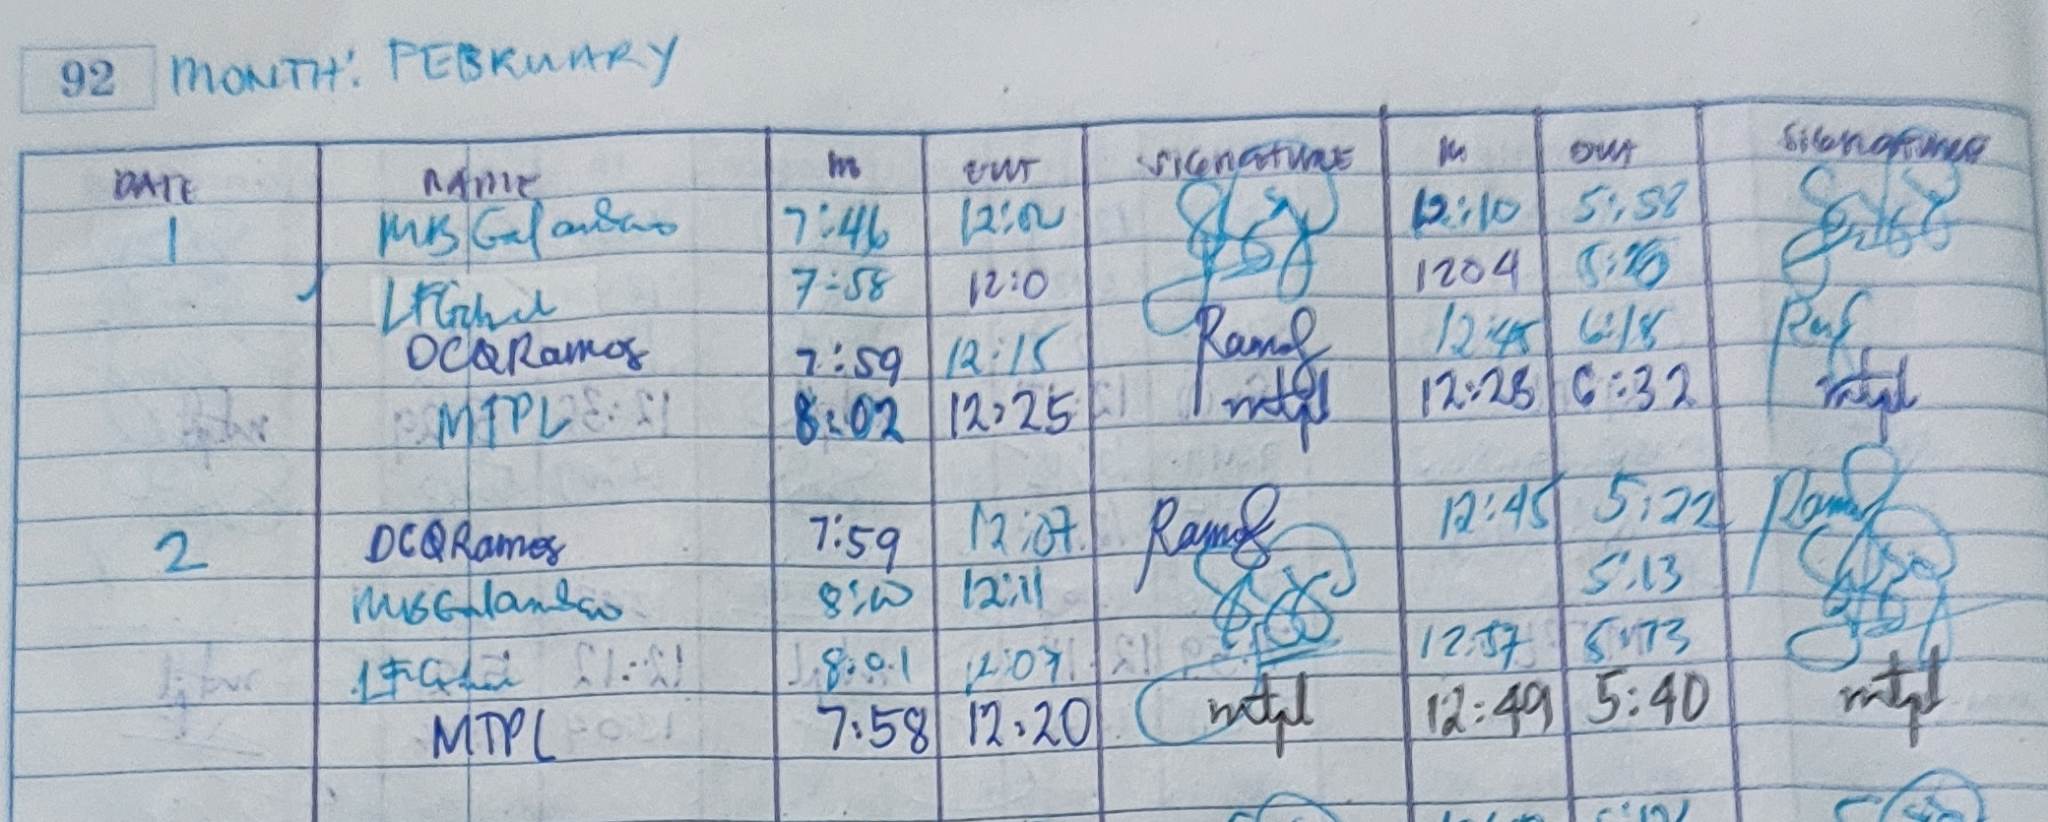 92 MONTH: FEBRUARY
DATE NAME IN OUT SIGNATURE IN OUT SIGNATURE
1 MBGalambao 7:46 12:10 5:58
7:58 12:0 1204
DCQRamos 7:59 12:15 Ramos 12:45 6:18
MTPL 8:02 12:25 mtpl 12:28 6:32 mtpl
2 DCQRamos 7:59 12:07 Ramos 12:45 5:22 Ramos
MBGalambao 12:11 5:13
8:01 12:07 12:57
MTPL 7:58 12:20 mtpl 12:49 5:40 mtpl